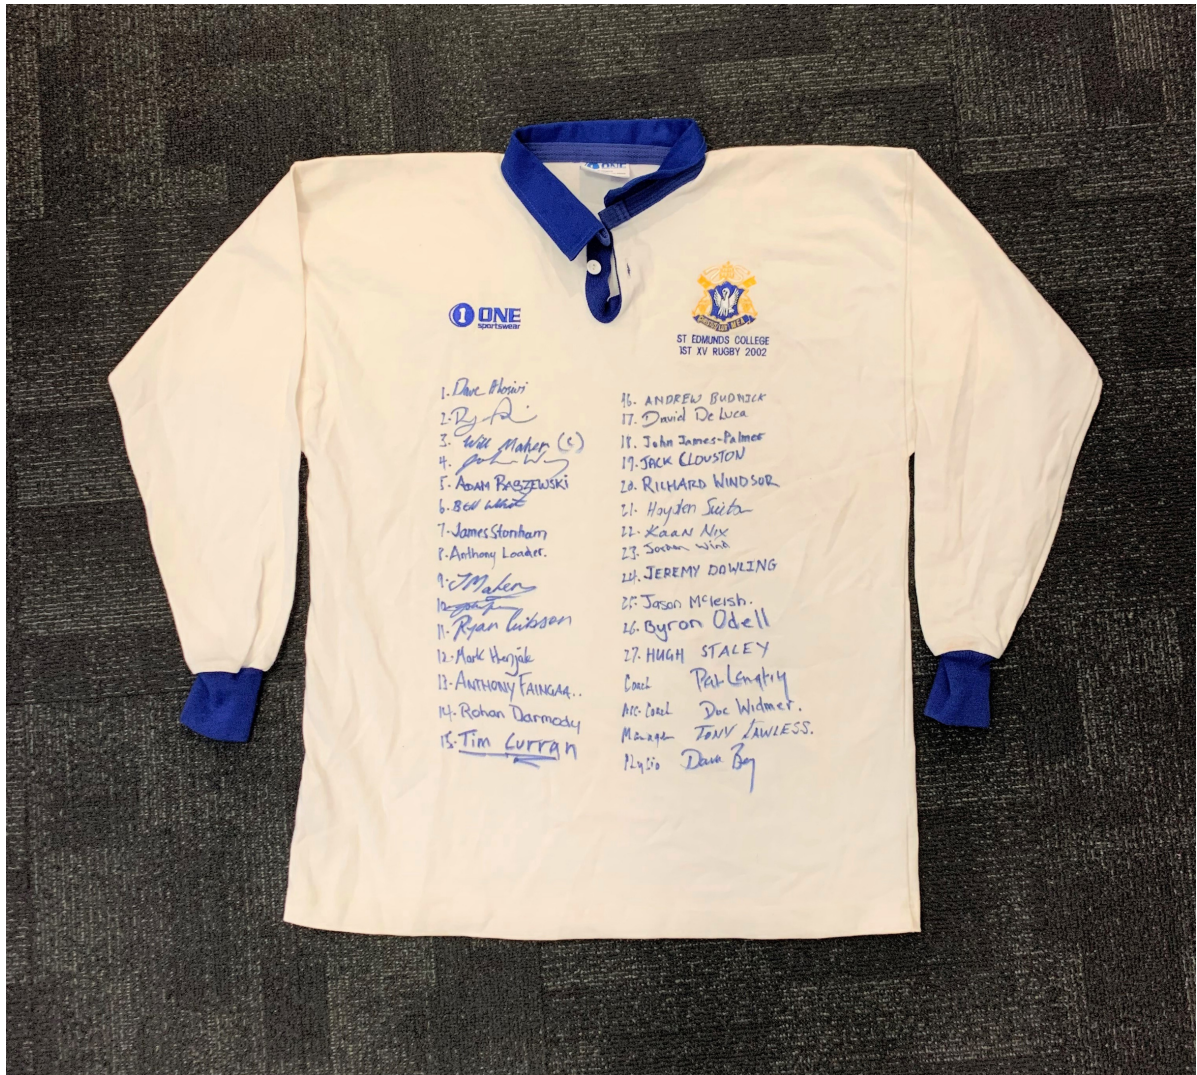 ONE
1 ONE
sportswear
ST EDMUNDS COLLEGE
1ST XV RUGBY 2002
1. Dave
2.
3. Will Maher (c)
4.
5. ADAM RASZEWSKI
6.
7. James Stonham
8. Anthony Loader.
9. J Maher
10.
11. Ryan Gibson
12. Mark
13. ANTHONY FAINGAA..
14. Rohan Darmody
15. Tim Curran
16. ANDREW BUDNICK
17. David De Luca
18. John James-Palmer
19. JACK CLOUSTON
20. RICHARD WINDSOR
21. Hayden
22. Kaan Nix
23. Jordan Wind
24. JEREMY DOWLING
25. Jason McLeish.
26. Byron Odell
27. HUGH STALEY
Coach Pat Langtry
Ass. Coach Doc Widmer.
Manager TONY LAWLESS.
Physio Dave